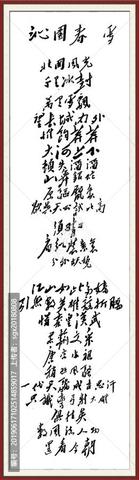 沁园春 雪
北国风光
千里冰封
万里雪飘
望长城内外
惟余莽莽
大河上下
顿失滔滔
山舞银蛇
原驰蜡象
欲与天公试比高
须晴日
看红装素裹
分外妖娆
江山如此多娇
引无数英雄竞折腰
惜秦皇汉武
略输文采
唐宗宋祖
稍逊风骚
一代天骄成吉思汗
只识弯弓射大雕
俱往矣
数风流人物
还看今朝
编号：20190617102514859017 上传者：sgx20180808